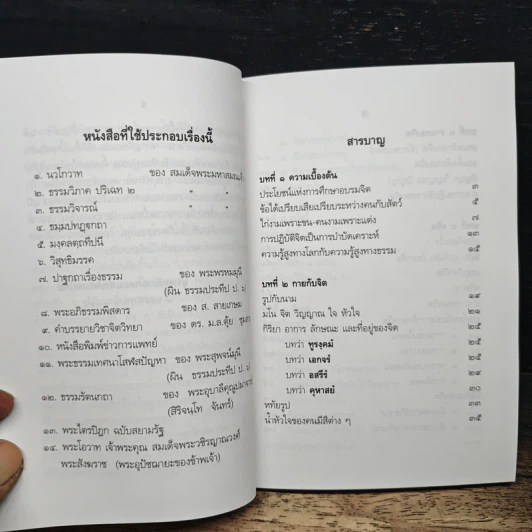 หนังสือที่ใช้ประกอบเรื่องนี้
๑. นวโกวาท ของ สมเด็จพระมหาสมณเจ้า
๒. ธรรมวิภาค ปริเฉท ๒ " "
๓. ธรรมวิจารณ์ " "
๔. ธมฺมปทฏฺฐกถา
๕. มงคลตฺถทีปนี
๖. วิสุทธิมรรค
๗. ปาฐกถาเรื่องธรรม ของ พระพรหมมุนี
(ผิน ธรรมประทีป ป. ๖)
๘. พระอภิธรรมพิสดาร ของ ส. สายเกษม
๙. คำบรรยายวิชาจิตวิทยา ของ ดร. ม.ล. ตุ้ย
๑๐. หนังสือพิมพ์ข่าวการแพทย์
๑๑. พระธรรมเทศนาโสฬสปัญหา ของ พระสุพจน์มุนี
(ผิน ธรรมประทีป ป. ๖)
๑๒. ธรรมรัตนกถา ของ พระอุบาลีคุณูปมาจารย์
(สิริจนฺโท จันทร์)
๑๓. พระไตรปิฎก ฉบับสยามรัฐ
๑๔. พระโอวาท เจ้าพระคุณ สมเด็จพระวชิรญาณวงศ์
พระสังฆราช (พระอุปัชฌายะของข้าพเจ้า)
สารบาญ
บทที่ ๑ ความเบื้องต้น
ประโยชน์แห่งการศึกษาอบรมจิต ๓
ข้อได้เปรียบเสียเปรียบระหว่างคนกับสัตว์ ๕
ไก่งามเพราะขน-คนงามเพราะแต่ง ๗
การปฏิบัติจิตเป็นการบำบัดเคราะห์ ๑๓
ความรู้สูงทางโลกกับความรู้สูงทางธรรม ๑๕
บทที่ ๒ กายกับจิต
รูปกับนาม ๑๙
มโน จิต วิญญาณ ใจ หัวใจ ๒๑
กิริยา อาการ ลักษณะ และที่อยู่ของจิต ๒๕
บทว่า ทูรงฺคมํ ๒๕
บทว่า เอกจรํ ๒๕
บทว่า อสรีรํ ๒๙
บทว่า คุหาสยํ ๓๐
หทัยรูป ๓๓
น้ำหัวใจของคนมีสีต่าง ๆ ๓๕